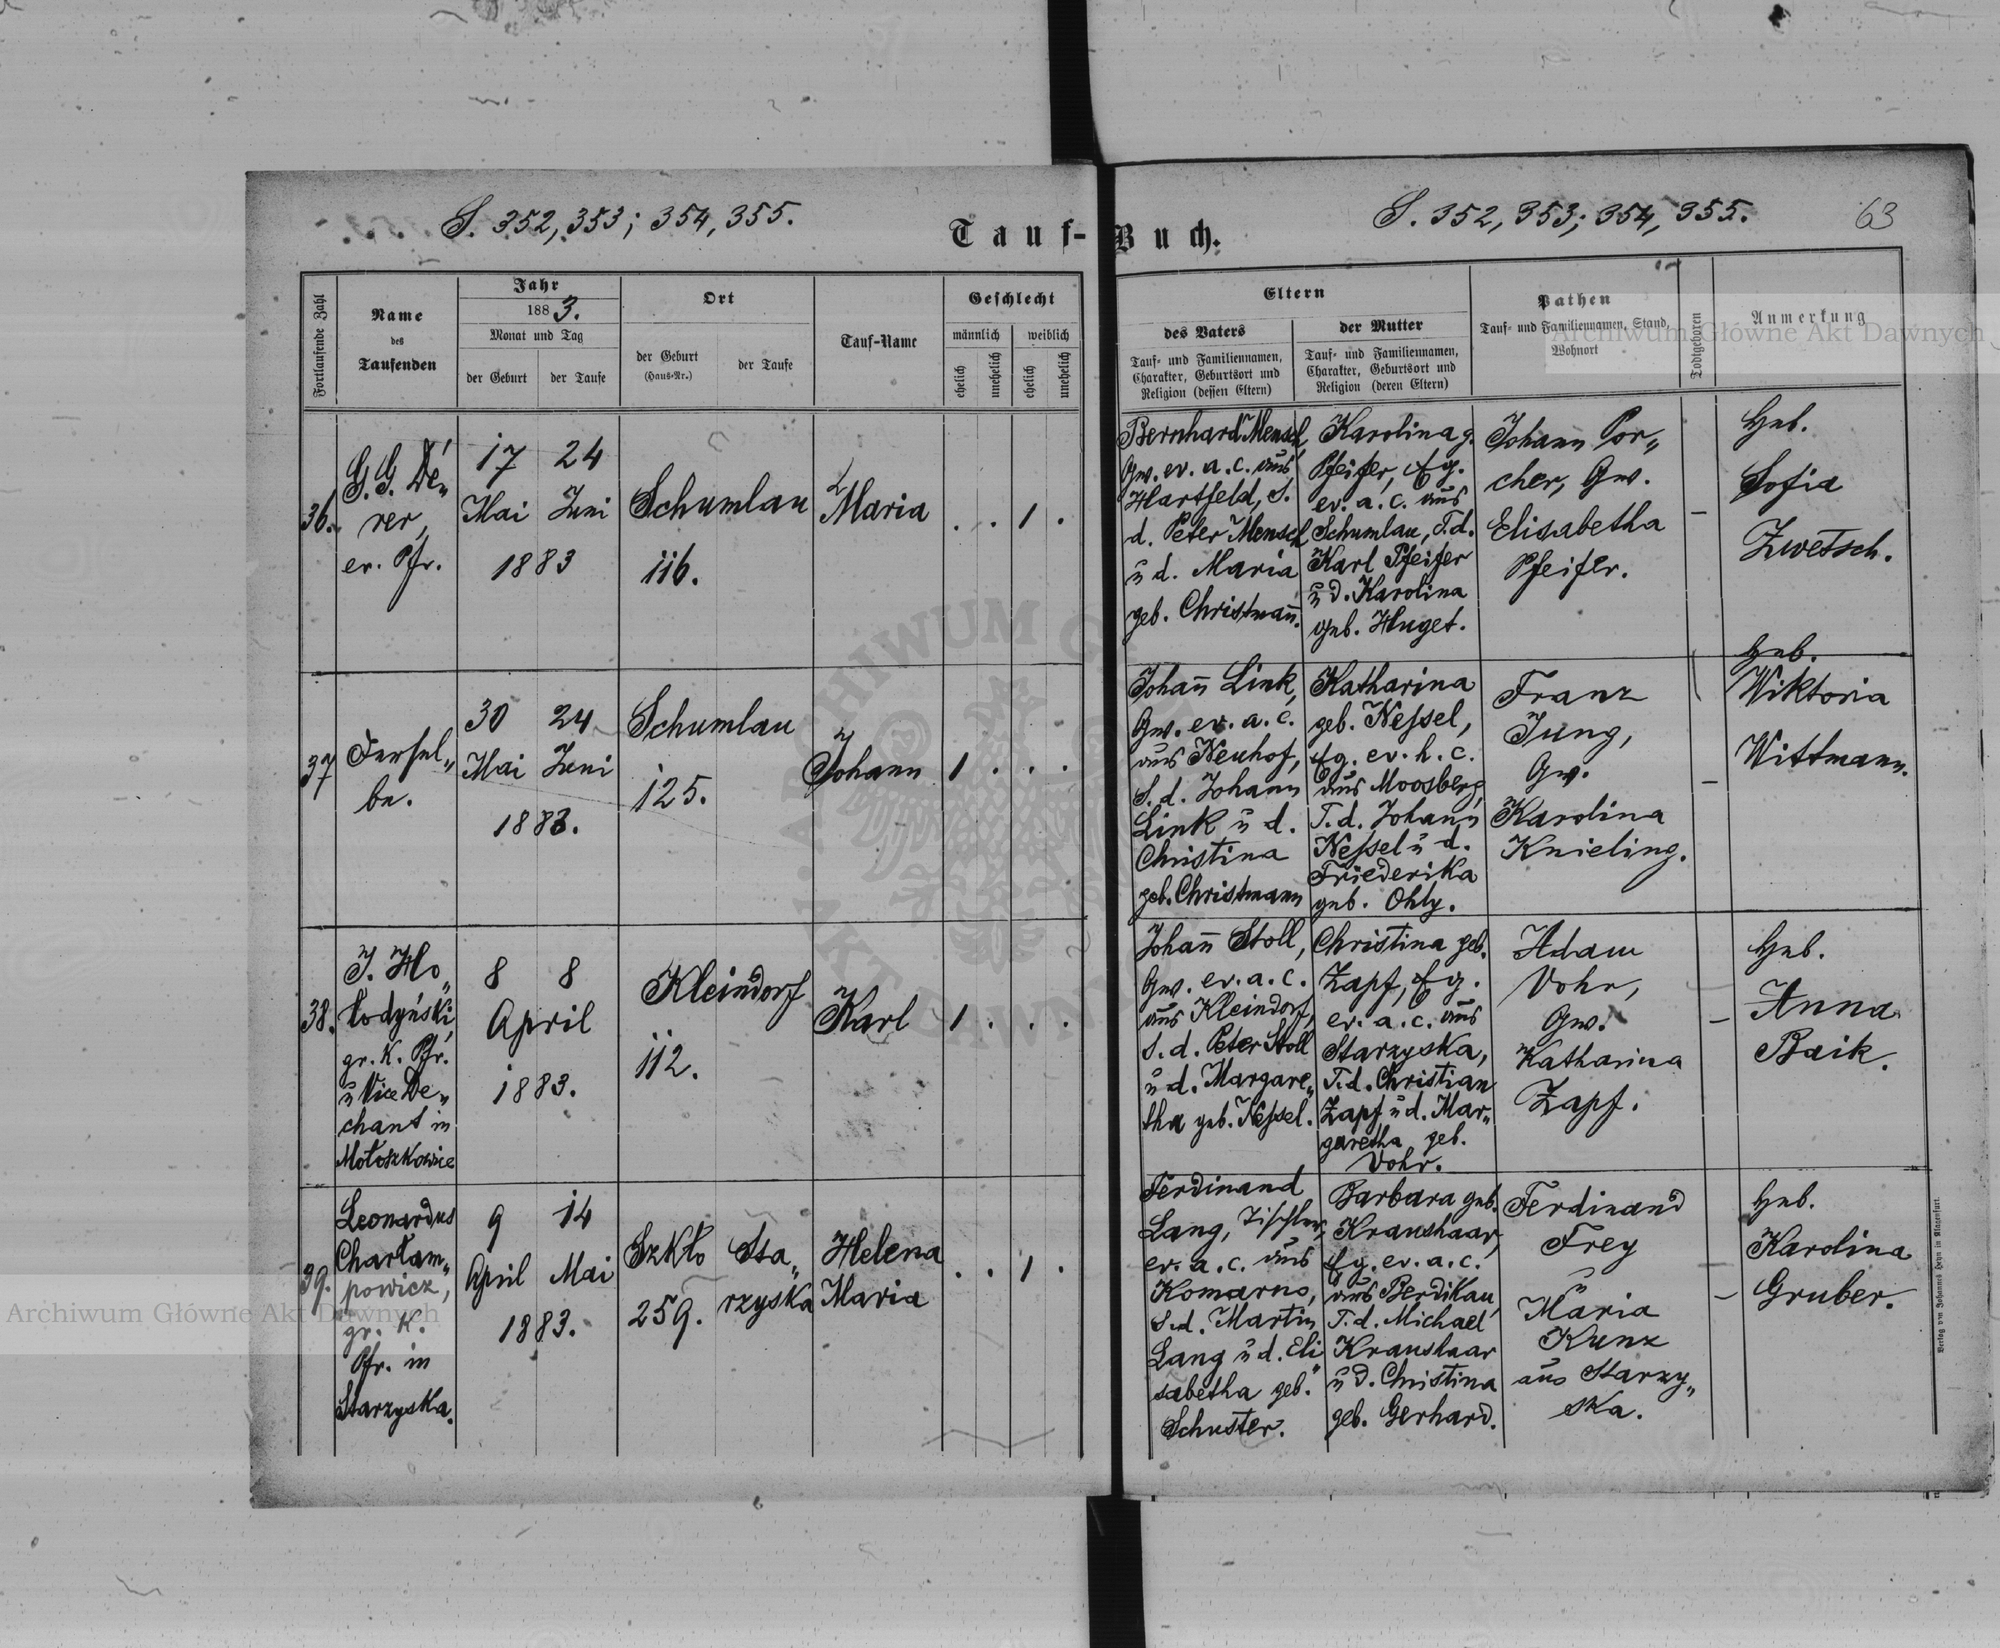 S. 352, 353; 354, 355.
S. 352, 353; 354, 355.
63
Tauf-Buch.
Fortlaufende Zahl
Name
des
Taufenden
Jahr
1883.
Monat und Tag
der Geburt
der Taufe
Ort
der Geburt
(Haus-Nr.)
der Taufe
Tauf-Name
Geschlecht
männlich
weiblich
ehelich
unehelich
ehelich
unehelich
Eltern
des Vaters
Tauf- und Familiennamen,
Charakter, Geburtsort und
Religion (dessen Eltern)
der Mutter
Tauf- und Familiennamen,
Charakter, Geburtsort und
Religion (deren Eltern)
Pathen
Tauf- und Familiennamen, Stand,
Wohnort
Todtgeboren
Anmerkung
Archiwum Główne Akt Dawnych
36.
G. G. Dé„
rer,
ev. Pfr.
17 24
Mai Juni
1883
Schumlau
116.
Maria
. . 1 .
Bernhard Mensch
Gw. ev. a. c. aus
Hartfeld, S.
d. Peter Mensch
u d. Maria
geb. Christmañ.
Karolina g.
Pfeifer, Eg.
ev. a. c. aus
Schumlau, T. d.
Karl Pfeifer
u d. Karolina
geb. Huget.
Johann Por„
cher, Gw.
Elisabetha
Pfeifer.
–
Heb.
Sofia
Zwetsch.
37
Dersel„
be.
30 24
Mai Juni
1883.
Schumlau
125.
Johann
1 . . .
Johañ Link,
Gw. ev. a. c.
aus Neuhof,
S. d. Johann
Link u d.
Christina
geb. Christmann
Katharina
geb. Nessel,
Eg. ev. h. c.
aus Moosberg,
T. d. Johañ
Nessel u d.
Friederika
geb. Ohly.
Franz
Jung,
Gw.
Karolina
Knieling.
–
Heb.
Wiktoria
Wittmann.
38.
J. Ho„
łodyński,
gr. k. Pfr.
u Vice De„
chant in
Mołoszkowice
8 8
April
1883.
Kleindorf
112.
Karl
1 . . .
Johañ Stoll,
Gw. ev. a. c.
aus Kleindorf,
S. d. Peter Stoll
u d. Margare„
tha geb. Nessel.
Christina geb.
Zapf, Eg.
ev. a. c. aus
Starzyska,
T. d. Christian
Zapf u d. Mar„
garetha geb.
Vohr.
Adam
Vohr,
Gw.
Katharina
Zapf.
–
Heb.
Anna
Baik.
39.
Leonardus
Charłam„
powicz,
gr. k.
Pfr. in
Starzyska.
9 14
April Mai
1883.
Szkło
259.
Sta„
rzyska
Helena
Maria
. . 1 .
Ferdinand
Lang, Tischler,
ev. a. c. aus
Komarno,
S. d. Martin
Lang u d. Eli„
sabetha geb.
Schuster.
Barbara geb.
Kraushaar,
Eg. ev. a. c.
aus Berdikau,
T. d. Michael
Kraushaar
u d. Christina
geb. Gerhard.
Ferdinand
Frey
u
Maria
Kunz
aus Starzy„
ska.
–
Heb.
Karolina
Gruber.
Archiwum Główne Akt Dawnych
Verlag von Johannes Heyn in Klagenfurt.
ARCHIWUM GŁÓWNE AKT DAWNYCH